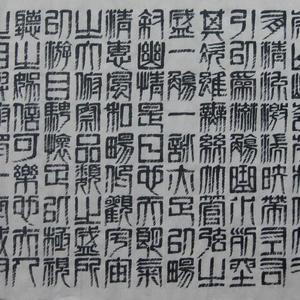 有清流激湍映帶左右
引以為流觴曲水列坐
其次雖無絲竹管弦之
盛一觴一詠亦足以暢
敘幽情是日也天朗氣
清惠風和暢仰觀宇宙
之大俯察品類之盛所
以遊目騁懷足以極視
聽之娛信可樂也夫人